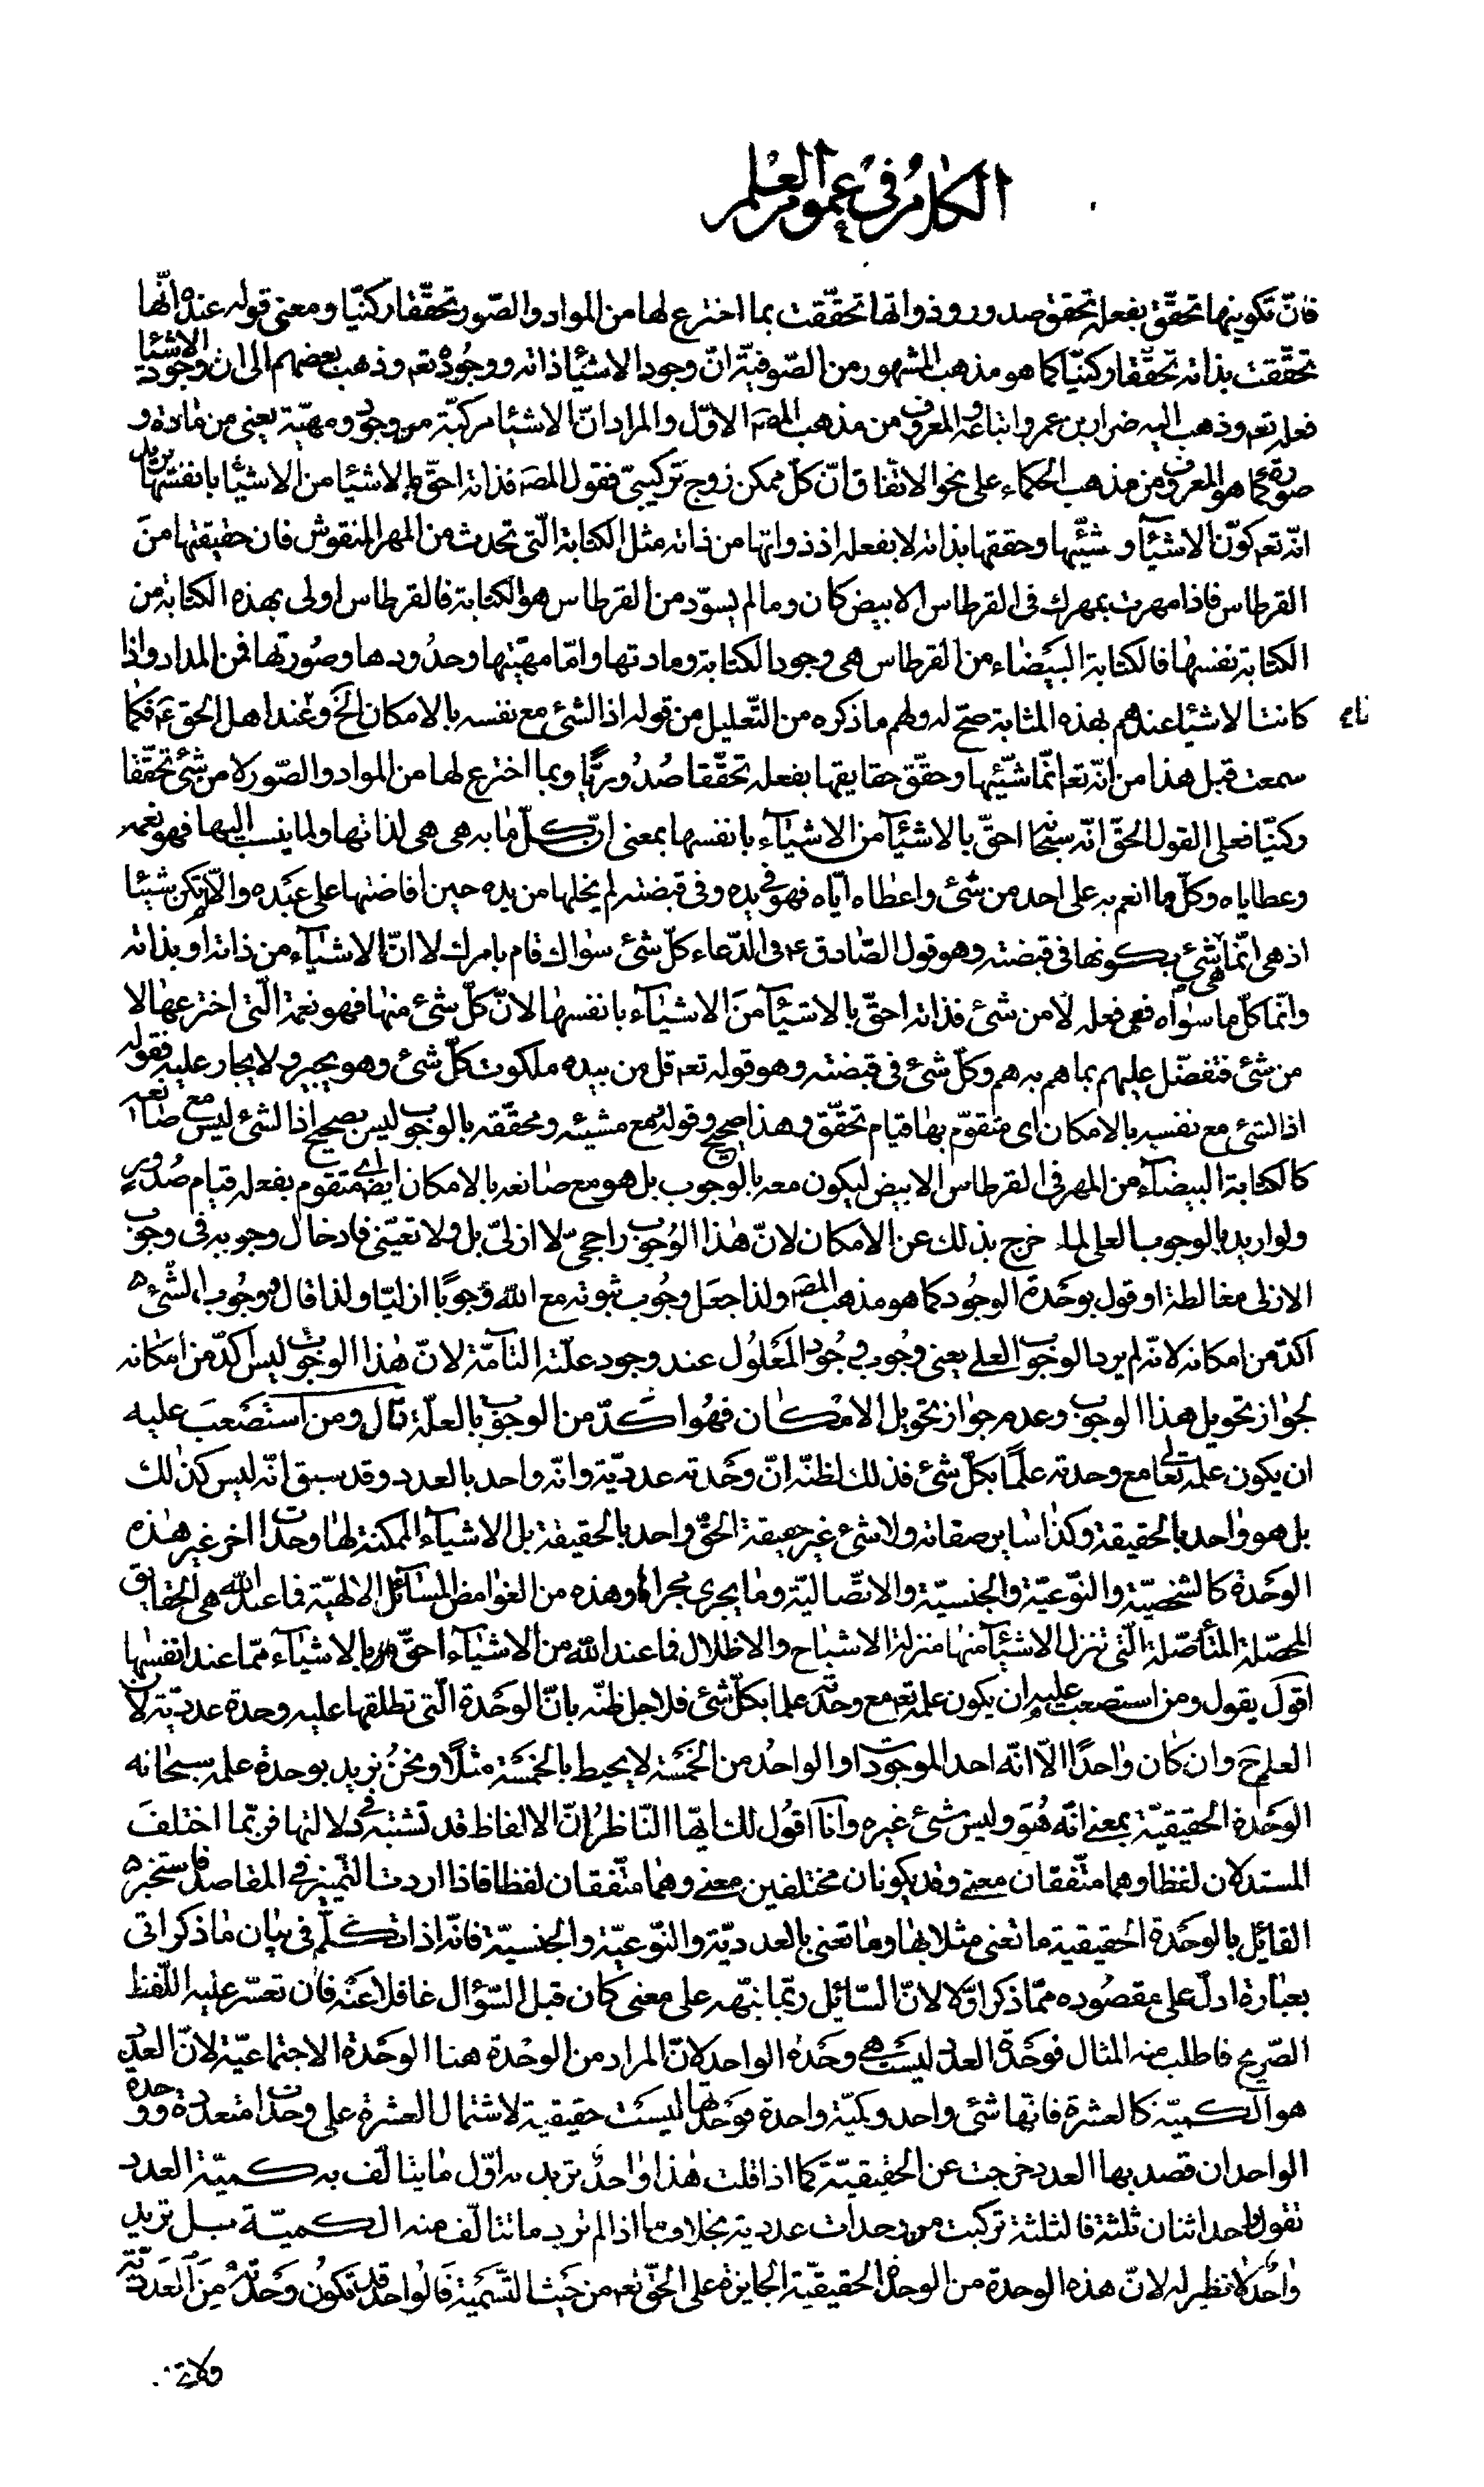 الكلام في عموم العلم
فانّ تكوينها تحقّق بفعله تحقق صدور وذواتها تحقّقت بما اخترع لها من المواد والصّور تحقّقا ركنيّا ومعنى قوله عنده انّها
تحقّقت بذاته تحقّقا ركنيّا كما هو مذهب المشهور من الصّوفيّة انّ وجود الاشيئا ذاته ووجُوده تعم وذهب بعضهم الى ان وجود الاشيئا
فعله تعم وذهب اليه ضرار بن عمر واتباعه والمعروف من مذهب المصَ الاوّل والمراد انّ الاشيئا مركبّة من وجود ومهيّة يعنى من مادة و
صورة كما هو المعروف من مذهب الحكماء على نحو الاتّفاق انّ كلّ ممكن زوج تركيبىّ فقول المصَ فذاته احقّ بالاشيئا من الاشيئا بانفسها يريد
انّه تعم كوّن الاشيئآ و شيّئها وحققها بذاته لا بفعله اذ ذواتها من ذاته مثل الكتابة الّتى تحدث من المهر المنقوش فان حقيقتها منَ
القرطاس فاذا مهرت بمهرك فى القرطاس الابيض كان وما لم يسوّد من القرطاس هو الكتابة فالقرطاس اولى بهذه الكتابة من
الكتابة نفسها فالكتابة البيَضاء من القرطاس هى وجود الكتابة ومادتها وامّا مهيّتها وحدُودها وصُورتها فمن المداد واذا
كانت الاشيئا عندهم بهذه المثابة صحّ له ولهم ما ذكره من التّعليل من قوله اذ الشئ مع نفسه بالامكان الخ وعند اهل الحق ع فكما
سمعت قبل هذا من انّه تعا انّما شيّئها وحقّق حقايقها بفعله تحقّقا صُدُوريّا وبما اخترع لها من المواد والصّور لا من شئ تحقّقا
ركنيّا فعلى القول الحقّ انّه سبحانه احقّ بالاشيئآ من الاشيآء بانفسها بمعنى ان كلّ ما به هى هى لذاتها ولما ينسب اليها فهو نعمه
وعطاياه وكلّ ما انعم به على احد من شئ واعطاه ايّاه فهو فى يده وفى قبضته لم يخلها من يده حين افاضتها على عبَده والّا لم تكن شيئا
اذ هى انّما هى شئ بكونها فى قبضته وهو قول الصّادق ع فى الدّعاء كلّ شئ سواك قام بامرك لا انّ الاشيآء من ذاته او بذاته
وانّما كلّ ما سواه فمن فعله لا من شئ فذاته احقّ بالاشيئآ منَ الاشيآء بانفسها لانّ كلّ شئ منها فهو نعمة الّتى اخترعها لا
من شئ فتفضّل عليهم بما هم به هم وكلّ شئ فى قبضته وهو قوله تعم قل من بيده ملكوت كلّ شئ وهو يجير ولا يجار عليه فقوله
اذ الشئ مع نفسه بالامكان اى متقوّم بها قيام تحقّق وهذا صحيح وقوله ومع مشيئه ومحقّقه بالوجوب ليس بصحيح اذ الشئ ليس مع صانعه
كالكتابة البيضآء من المهر فى القرطاس الابيض ليكون معه بالوجوب بل هو مع صانعه بالامكان ايضا اى متقوم بفعله قيام صُدورٍ
ولو اريد بالوجوب العلى لما خرج بذلك عن الامكان لانّ هذا الوُجوب راجحىّ لا ازلىّ بل ولا تعيّنى فادخال وجوبه فى وجوب
الازلى مغالطة او قول بوحَدة الوجُود كما هو مذهب المصَ ولذا جعَل وجُوب ثبوته مع اللّه وجوبًا ازليّا ولذا قال ووجُوب الشّئ
آكدّ من امكانه لانّه لم يرد بالوجوب العلى يعنى وجُوب وجُود المَعَلوُل عند وجود علّته التآمّة لانّ هٰذا الوجوب ليس آكدّ من امكانه
لجواز تحويل هذا الوجوب وعدم جواز تحويل الامكان فهُو اشدّ من الوجوب بالعلّة قال ومن استصَعبَ عليه
ان يكون علمه تعالى مع وحدته علمًا بكلّ شئ فذلك لظنّه انّ وحَدته عدديّة وانّه واحد بالعدد وقد سبق انّه ليس كذلك
بل هو واحد بالحقيقة وكذا ساير صفاته ولا شئ غير حقيقة الحقّ واحد بالحقيقة بل الاشيآء الممكنة لها وحدات اخر غير هذه
الوحَدة كالشخصيّة والنّوعيّة والجنسيّة والاتّصاليّة وما يجرى مجراها وهذه من الغوامض المسآئل الالهيّة فما عند اللّه هى الحقايق
المحصّلة المتأصّلة الّتى تنزل الاشيئآ منها منزلة الاشباح والاظلال فما عند اللّه من الاشيآء احقّ بالاشيآء ممّا عند انفسها
اقول يقول ومن استصعبت عليه ان يكون علمه تعم مع وحدته علما بكلّ شئ فلاجل ظنّه بانّ الوحَدة الّتى تطلقها عليه وحدة عدديّة لان
العلم ح وان كان واحدًا الّا انّه احد الموجودات او الواحد من الخمَسَة لا يحيط بالخمَسَة مثلًا ونحنُ نريد بوحدة علمه سبحانه
الوحَدة الحقيقيّة بمعنى انّه هُوَ وليس شئ غيره وانآ اقوُل لك ايّها النّاظرُ انّ الالفاظ قد تشتبه فى دلالتها فربّما اختلفَ
المستدلان لفظا وهما متّفقان معنى وقد يكونان مختلفين معنى وهما متّفقان لفظا فاذا اردت التّمييز فى المقاصد فاستخبره
القائِل بالوحَدة الحقيقية ما تعنى مثلا بها وما تعنى بالعدديّة والنّوعيّة والجنسيّة فانّه اذا تكلّم فى بيان ما ذكر اتى
بعبارة ادلّ على مقصُوده ممّا ذكر اوّلا لانّ السّائِل ربّما ينبّهه على معنى كان قبل السّؤال غافلا عَنَه فان تعسّر عليه اللّفظ
الصّريح فاطلب منه المثال فوحَدة العدد ليسَتْ هى وحَدة الواحد لانّ المراد من الوحْدة هنا الوحَدة الاجتماعيّة لانّ العدد
هو الكميّة كالعشرة فانّها شئ واحد وكميّة واحدة فوحَدتها ليسَت حقيقية لاشتمال العشرة على وحدات متعددة ووحدة
الواحد ان قصد بها العدد خرجت عن الحقيقيّة كما اذا قلت هٰذا واحدٌ تريد به اوّل ما يتالّف به كميّة العدد
تقول واحد اثنان ثلثة فالثلثة تركبت من وحدات عددية بخلاف ما اذا لم ترد ما تتالّف منه الكميّة بل تريد
واحدٌ لا نظير له لانّ هذه الوحدة من الوحدة الحقيقيّة الجايزة على الحقّ تعم من حَيث التّسَميَة فَالواحد قد تكوُن وحَدتُه مِنَ العدديّة
ولاتة